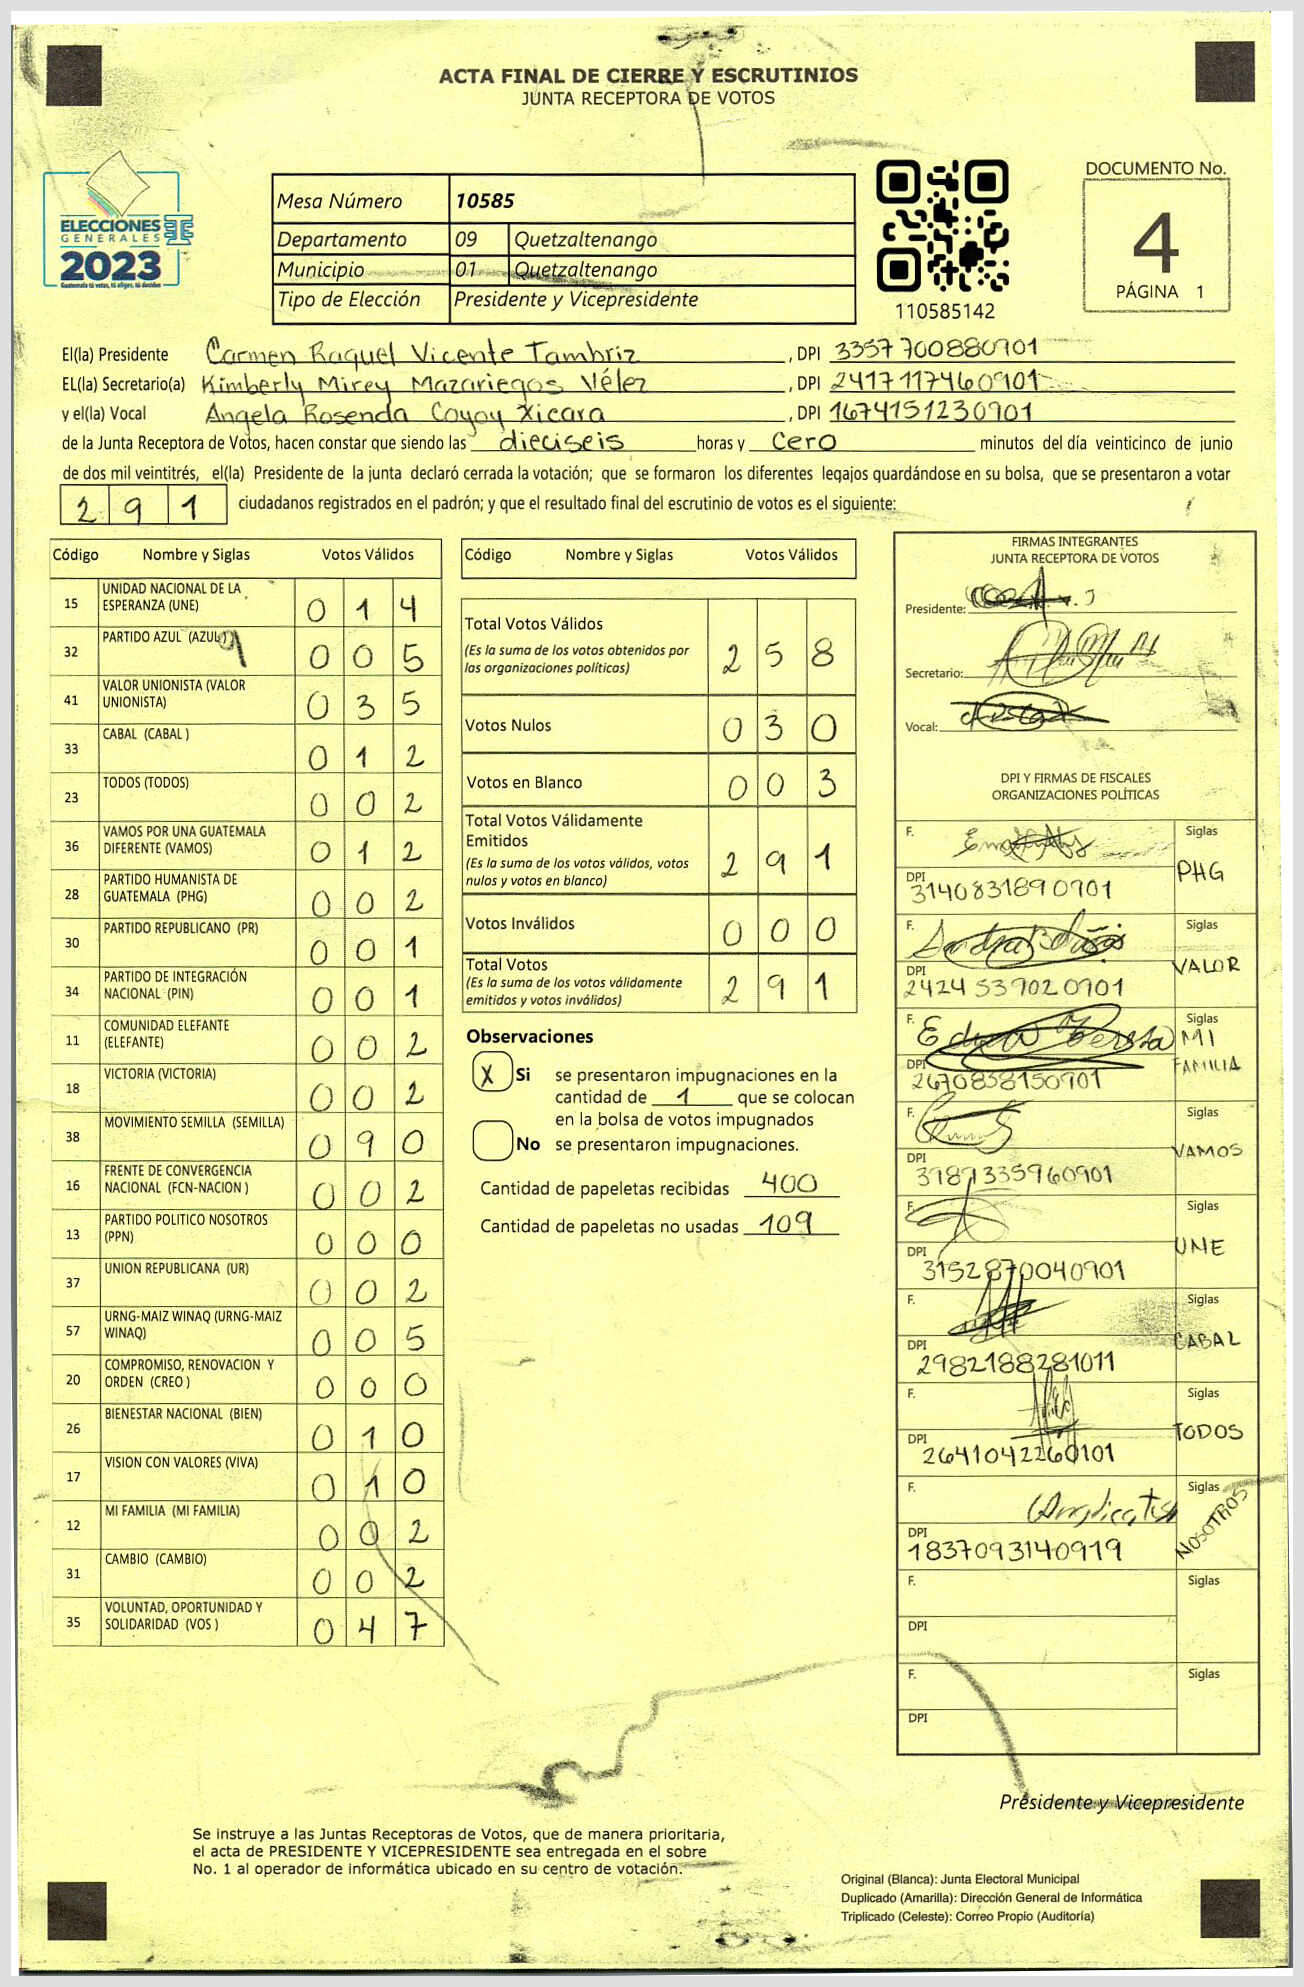 ACTA FINAL DE CIERRE Y ESCRUTINIOS
JUNTA RECEPTORA DE VOTOS
ELECCIONES
GENERALES
2023
Guatemala tú votas, tú eliges, tú decides
Mesa Número 10585
Departamento 09 Quetzaltenango
Municipio 01 Quetzaltenango
Tipo de Elección Presidente y Vicepresidente
110585142
DOCUMENTO No.
4
PÁGINA 1
El(la) Presidente Carmen Raquel Vicente Tambriz, DPI 3357700880901
EL(la) Secretario(a) Kimberly Mirey Mazariegos Vélez, DPI 2417117460901
y el(la) Vocal Angela Rosenda Coyoy Xicara, DPI 1674151230901
de la Junta Receptora de Votos, hacen constar que siendo las dieciseis horas y cero minutos del día veinticinco de junio
de dos mil veintitrés, el(la) Presidente de la junta declaró cerrada la votación; que se formaron los diferentes legajos guardándose en su bolsa, que se presentaron a votar
291 ciudadanos registrados en el padrón; y que el resultado final del escrutinio de votos es el siguiente:
Código Nombre y Siglas Votos Válidos
15 UNIDAD NACIONAL DE LA ESPERANZA (UNE) 014
32 PARTIDO AZUL (AZUL) 005
41 VALOR UNIONISTA (VALOR UNIONISTA) 035
33 CABAL (CABAL ) 012
23 TODOS (TODOS) 002
36 VAMOS POR UNA GUATEMALA DIFERENTE (VAMOS) 012
28 PARTIDO HUMANISTA DE GUATEMALA (PHG) 002
30 PARTIDO REPUBLICANO (PR) 001
34 PARTIDO DE INTEGRACIÓN NACIONAL (PIN) 001
11 COMUNIDAD ELEFANTE (ELEFANTE) 002
18 VICTORIA (VICTORIA) 002
38 MOVIMIENTO SEMILLA (SEMILLA) 090
16 FRENTE DE CONVERGENCIA NACIONAL (FCN-NACION ) 002
13 PARTIDO POLITICO NOSOTROS (PPN) 000
37 UNION REPUBLICANA (UR) 002
57 URNG-MAIZ WINAQ (URNG-MAIZ WINAQ) 005
20 COMPROMISO, RENOVACION Y ORDEN (CREO ) 000
26 BIENESTAR NACIONAL (BIEN) 010
17 VISION CON VALORES (VIVA) 010
12 MI FAMILIA (MI FAMILIA) 002
31 CAMBIO (CAMBIO) 002
35 VOLUNTAD, OPORTUNIDAD Y SOLIDARIDAD (VOS ) 047
Código Nombre y Siglas Votos Válidos
Total Votos Válidos 258
(Es la suma de los votos obtenidos por
las organizaciones políticas)
Votos Nulos 030
Votos en Blanco 003
Total Votos Válidamente
Emitidos 291
(Es la suma de los votos válidos, votos
nulos y votos en blanco)
Votos Inválidos 000
Total Votos 291
(Es la suma de los votos válidamente
emitidos y votos inválidos)
Observaciones
X Si se presentaron impugnaciones en la
cantidad de 1 que se colocan
en la bolsa de votos impugnados
No se presentaron impugnaciones.
Cantidad de papeletas recibidas 400
Cantidad de papeletas no usadas 109
FIRMAS INTEGRANTES
JUNTA RECEPTORA DE VOTOS
Presidente:
Secretario:
Vocal:
DPI Y FIRMAS DE FISCALES
ORGANIZACIONES POLÍTICAS
F. Siglas
PHG
DPI
3140831890901
F. Siglas
VALOR
DPI
2424539020901
F. Siglas
MI FAMILIA
DPI
2670858150901
F. Siglas
VAMOS
DPI
3987335960901
F. Siglas
UNE
DPI
3152870040901
F. Siglas
CABAL
DPI
2982188281011
F. Siglas
TODOS
DPI
2641042260101
F. Siglas
NOSOTROS
DPI
1837093140919
F. Siglas
DPI
F. Siglas
DPI
Presidente y Vicepresidente
Se instruye a las Juntas Receptoras de Votos, que de manera prioritaria,
el acta de PRESIDENTE Y VICEPRESIDENTE sea entregada en el sobre
No. 1 al operador de informática ubicado en su centro de votación.
Original (Blanca): Junta Electoral Municipal
Duplicado (Amarilla): Dirección General de Informática
Triplicado (Celeste): Correo Propio (Auditoría)